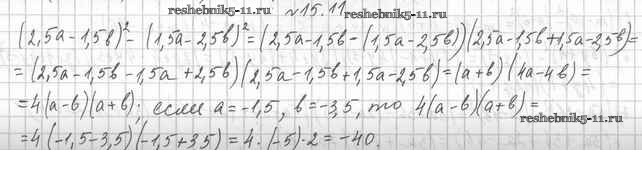 reshebnik5-11.ru
№15.11
(2,5a-1,5b)²-(1,5a-2,5b)²=(2,5a-1,5b-(1,5a-2,5b))(2,5a-1,5b+1,5a-2,5b)=
=(2,5a-1,5b-1,5a+2,5b)(2,5a-1,5b+1,5a-2,5b)=(a+b)(4a-4b)=
=4(a-b)(a+b); если a=-1,5, b=-3,5, то 4(a-b)(a+b)=
=4(-1,5-3,5)(-1,5+3,5)=4·(-5)·2=-40.
reshebnik5-11.ru
reshebnik5-11.ru